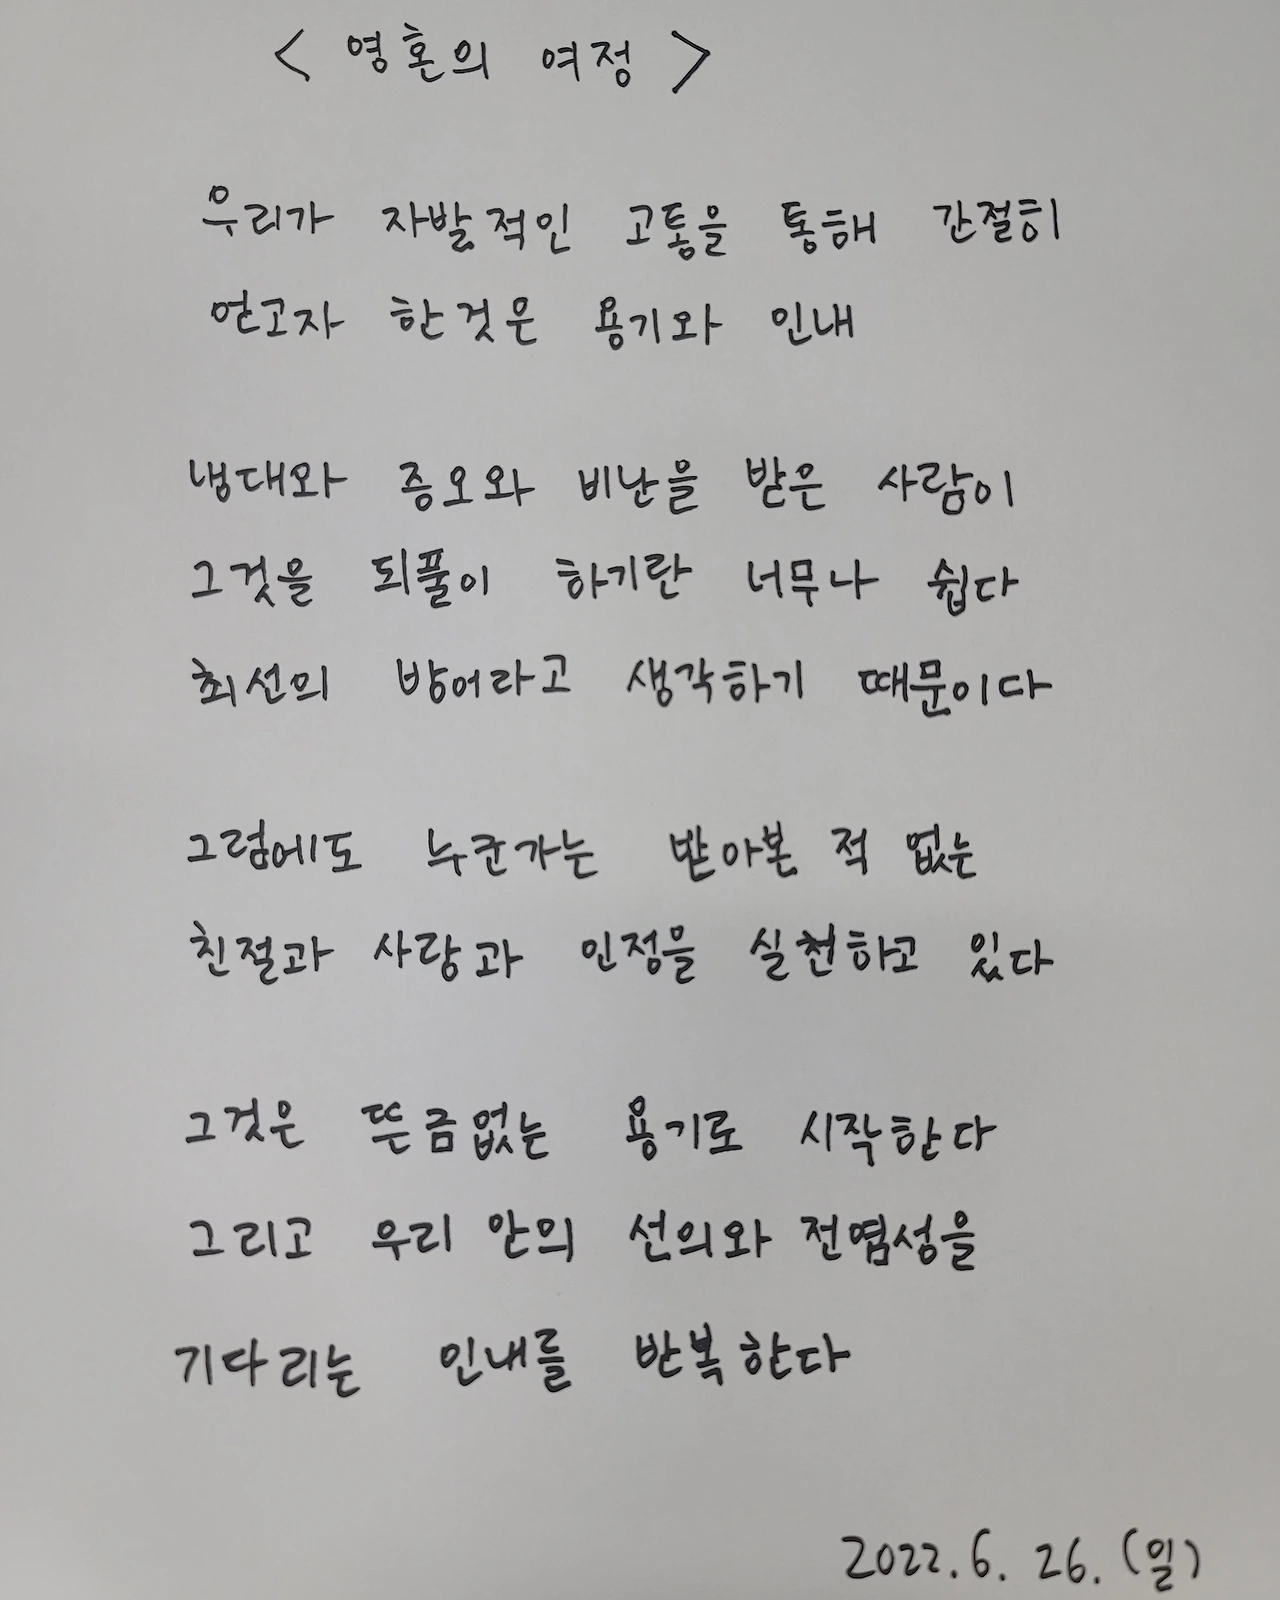 < 영혼의 여정 >
우리가 자발적인 고통을 통해 간절히
얻고자 한것은 용기와 인내
냉대와 증오와 비난을 받은 사람이
그것을 되풀이 하기란 너무나 쉽다
최선의 방어라고 생각하기 때문이다
그럼에도 누군가는 받아본 적 없는
친절과 사랑과 인정을 실천하고 있다
그것은 뜬금없는 용기로 시작한다
그리고 우리 안의 선의와 전염성을
기다리는 인내를 반복한다
2022. 6. 26. (일)